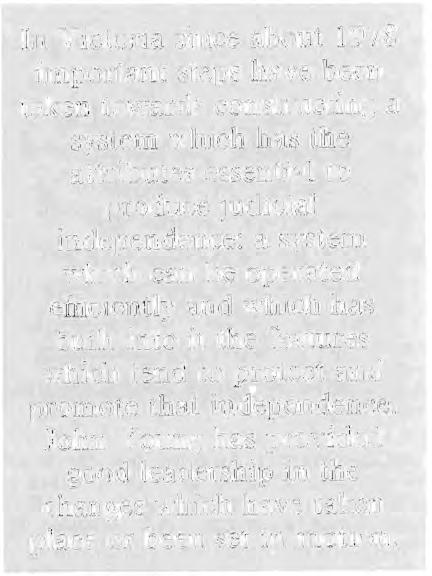 In Victoria since about 1978
important steps have been
taken towards constructing a
system which has the
attributes essential to
produce judicial
independence: a system
which can be operated
efficiently and which has
built into it the features
which tend to protect and
promote that independence.
John Young has provided
good leadership in the
changes which have taken
place or been set in motion.